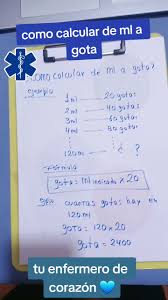 como calcular de ml a
gota
COMO CALCULAR DE ml A gota?
ejemplo
1ml 20 gotas
2ml 40 gotas
3ml 60 gotas
4ml 80 gotas
120ml ¿ ?
Formula
gota = ml indicado x 20
cuantas gotas hay en
120ml
gota = 120 x 20
gota = 2400
tu enfermero de
corazón